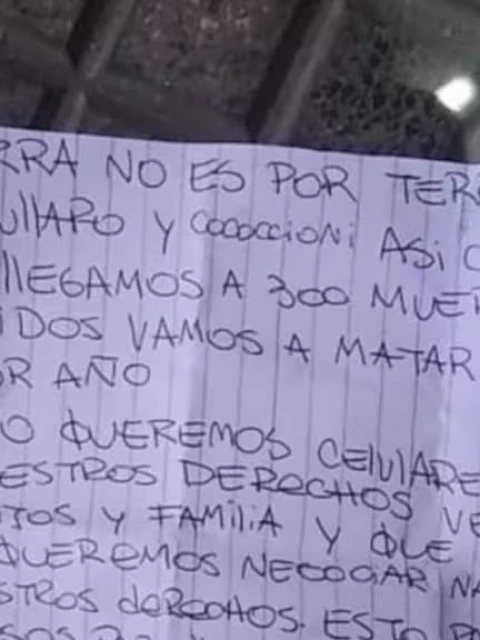 RRA NO ES POR TERR
ullARO Y COCOCCIONI ASI Q
llEGAMOS A 300 MUER
DOS VAMOS A MATAR
OR AÑO
O QUEREMOS CElUlARE
ESTROS DERECHOS VE
TOS Y FAMILIA Y QUE
QUEREMOS NEGOCIAR NA
STROS dERECHOS. ESTO